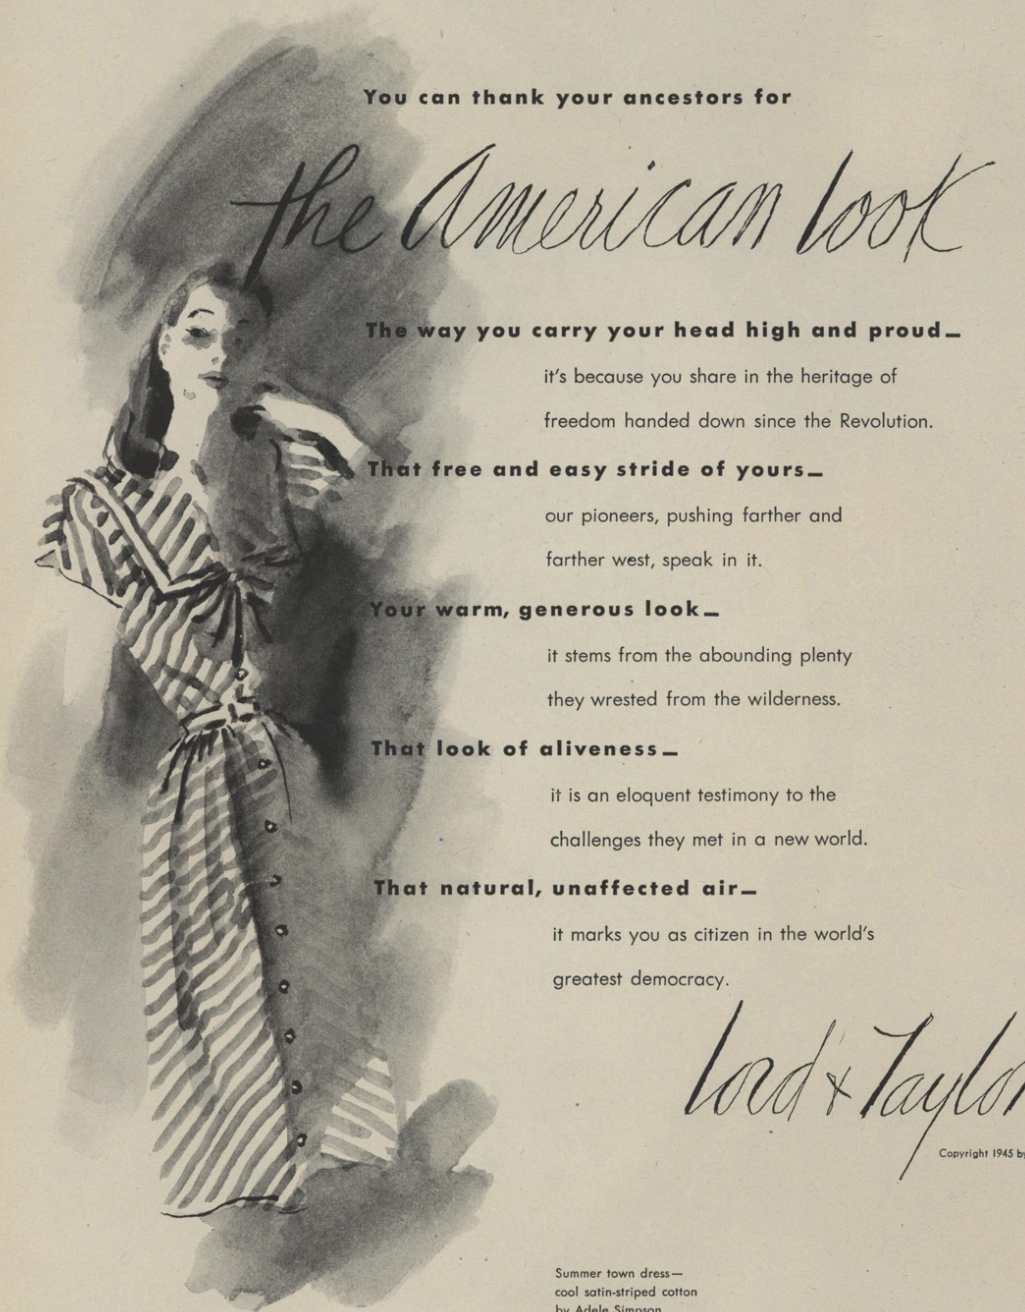 You can thank your ancestors for
the American look
The way you carry your head high and proud—
it's because you share in the heritage of
freedom handed down since the Revolution.
That free and easy stride of yours—
our pioneers, pushing farther and
farther west, speak in it.
Your warm, generous look—
it stems from the abounding plenty
they wrested from the wilderness.
That look of aliveness—
it is an eloquent testimony to the
challenges they met in a new world.
That natural, unaffected air—
it marks you as citizen in the world's
greatest democracy.
Lord & Taylor
Copyright 1945 by
Summer town dress—
cool satin-striped cotton
by Adele Simpson